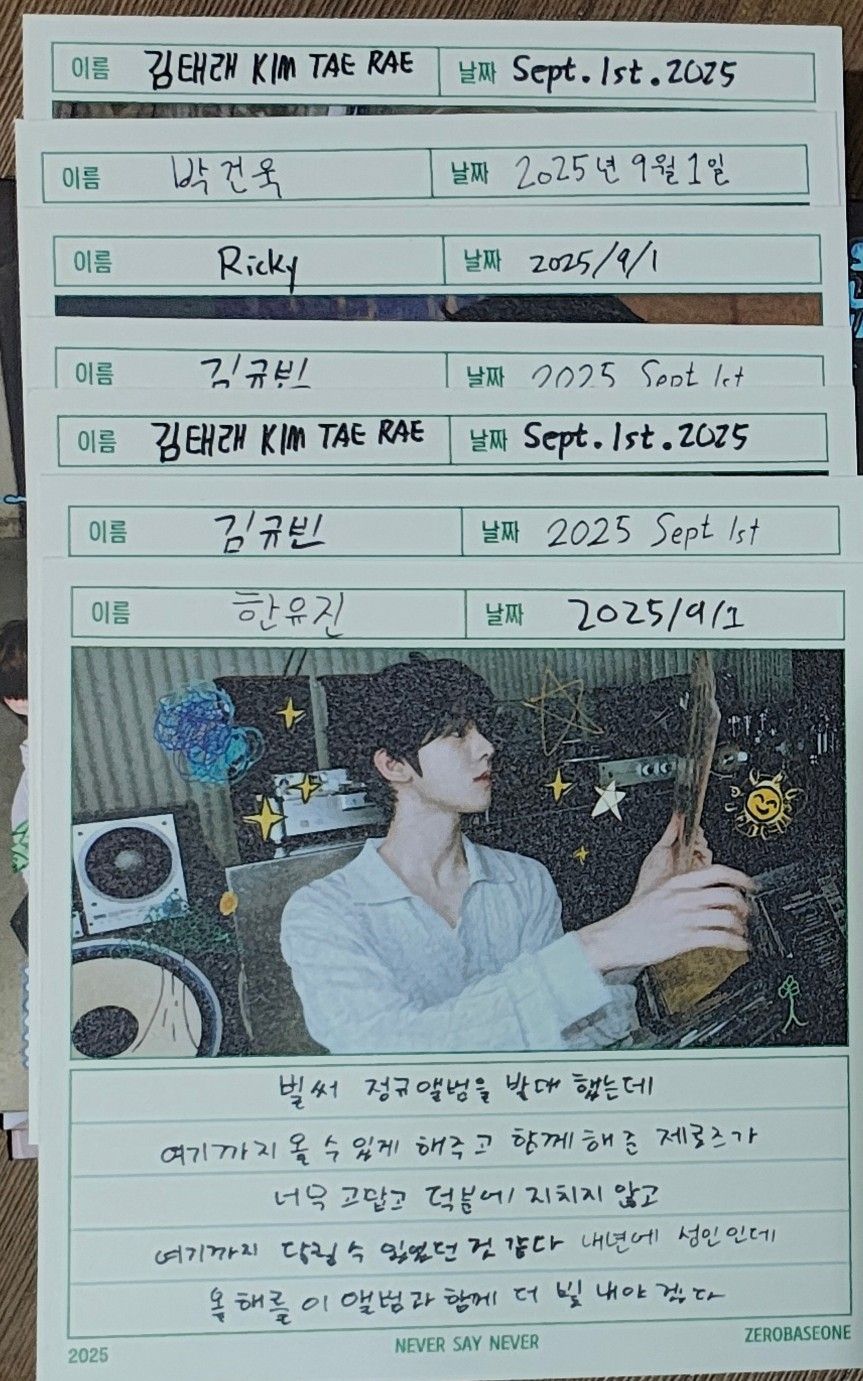 이름 김태래 KIM TAE RAE 날짜 Sept. 1st. 2025
이름 박건욱 날짜 2025년 9월 1일
이름 Ricky 날짜 2025/9/1
이름 김규빈 날짜 2025 Sept 1st
이름 김태래 KIM TAE RAE 날짜 Sept. 1st. 2025
이름 김규빈 날짜 2025 Sept 1st
이름 한유진 날짜 2025/9/1
벌써 정규앨범을 발매 했는데
여기까지 올 수 있게 해주고 함께해준 제로즈가
너무 고맙고 덕분에 지치지 않고
여기까지 달릴 수 있었던 것 같다 내년에 성인인데
올해를 이 앨범과 함께 더 빛 내야 겠다
2025 NEVER SAY NEVER ZEROBASEONE